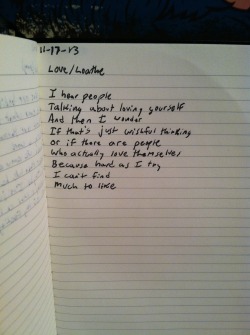 11-17-13
Love/Loathe
I hear people
Talking about loving yourself
And then I wonder
If that's just wishful thinking
or if there are people
who actually love themselves
Because hard as I try
I can't find
Much to like